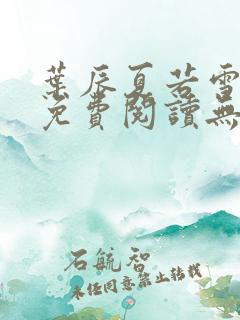 葉辰夏若雪
免費閱讀無
石航智
未经同意禁止转载